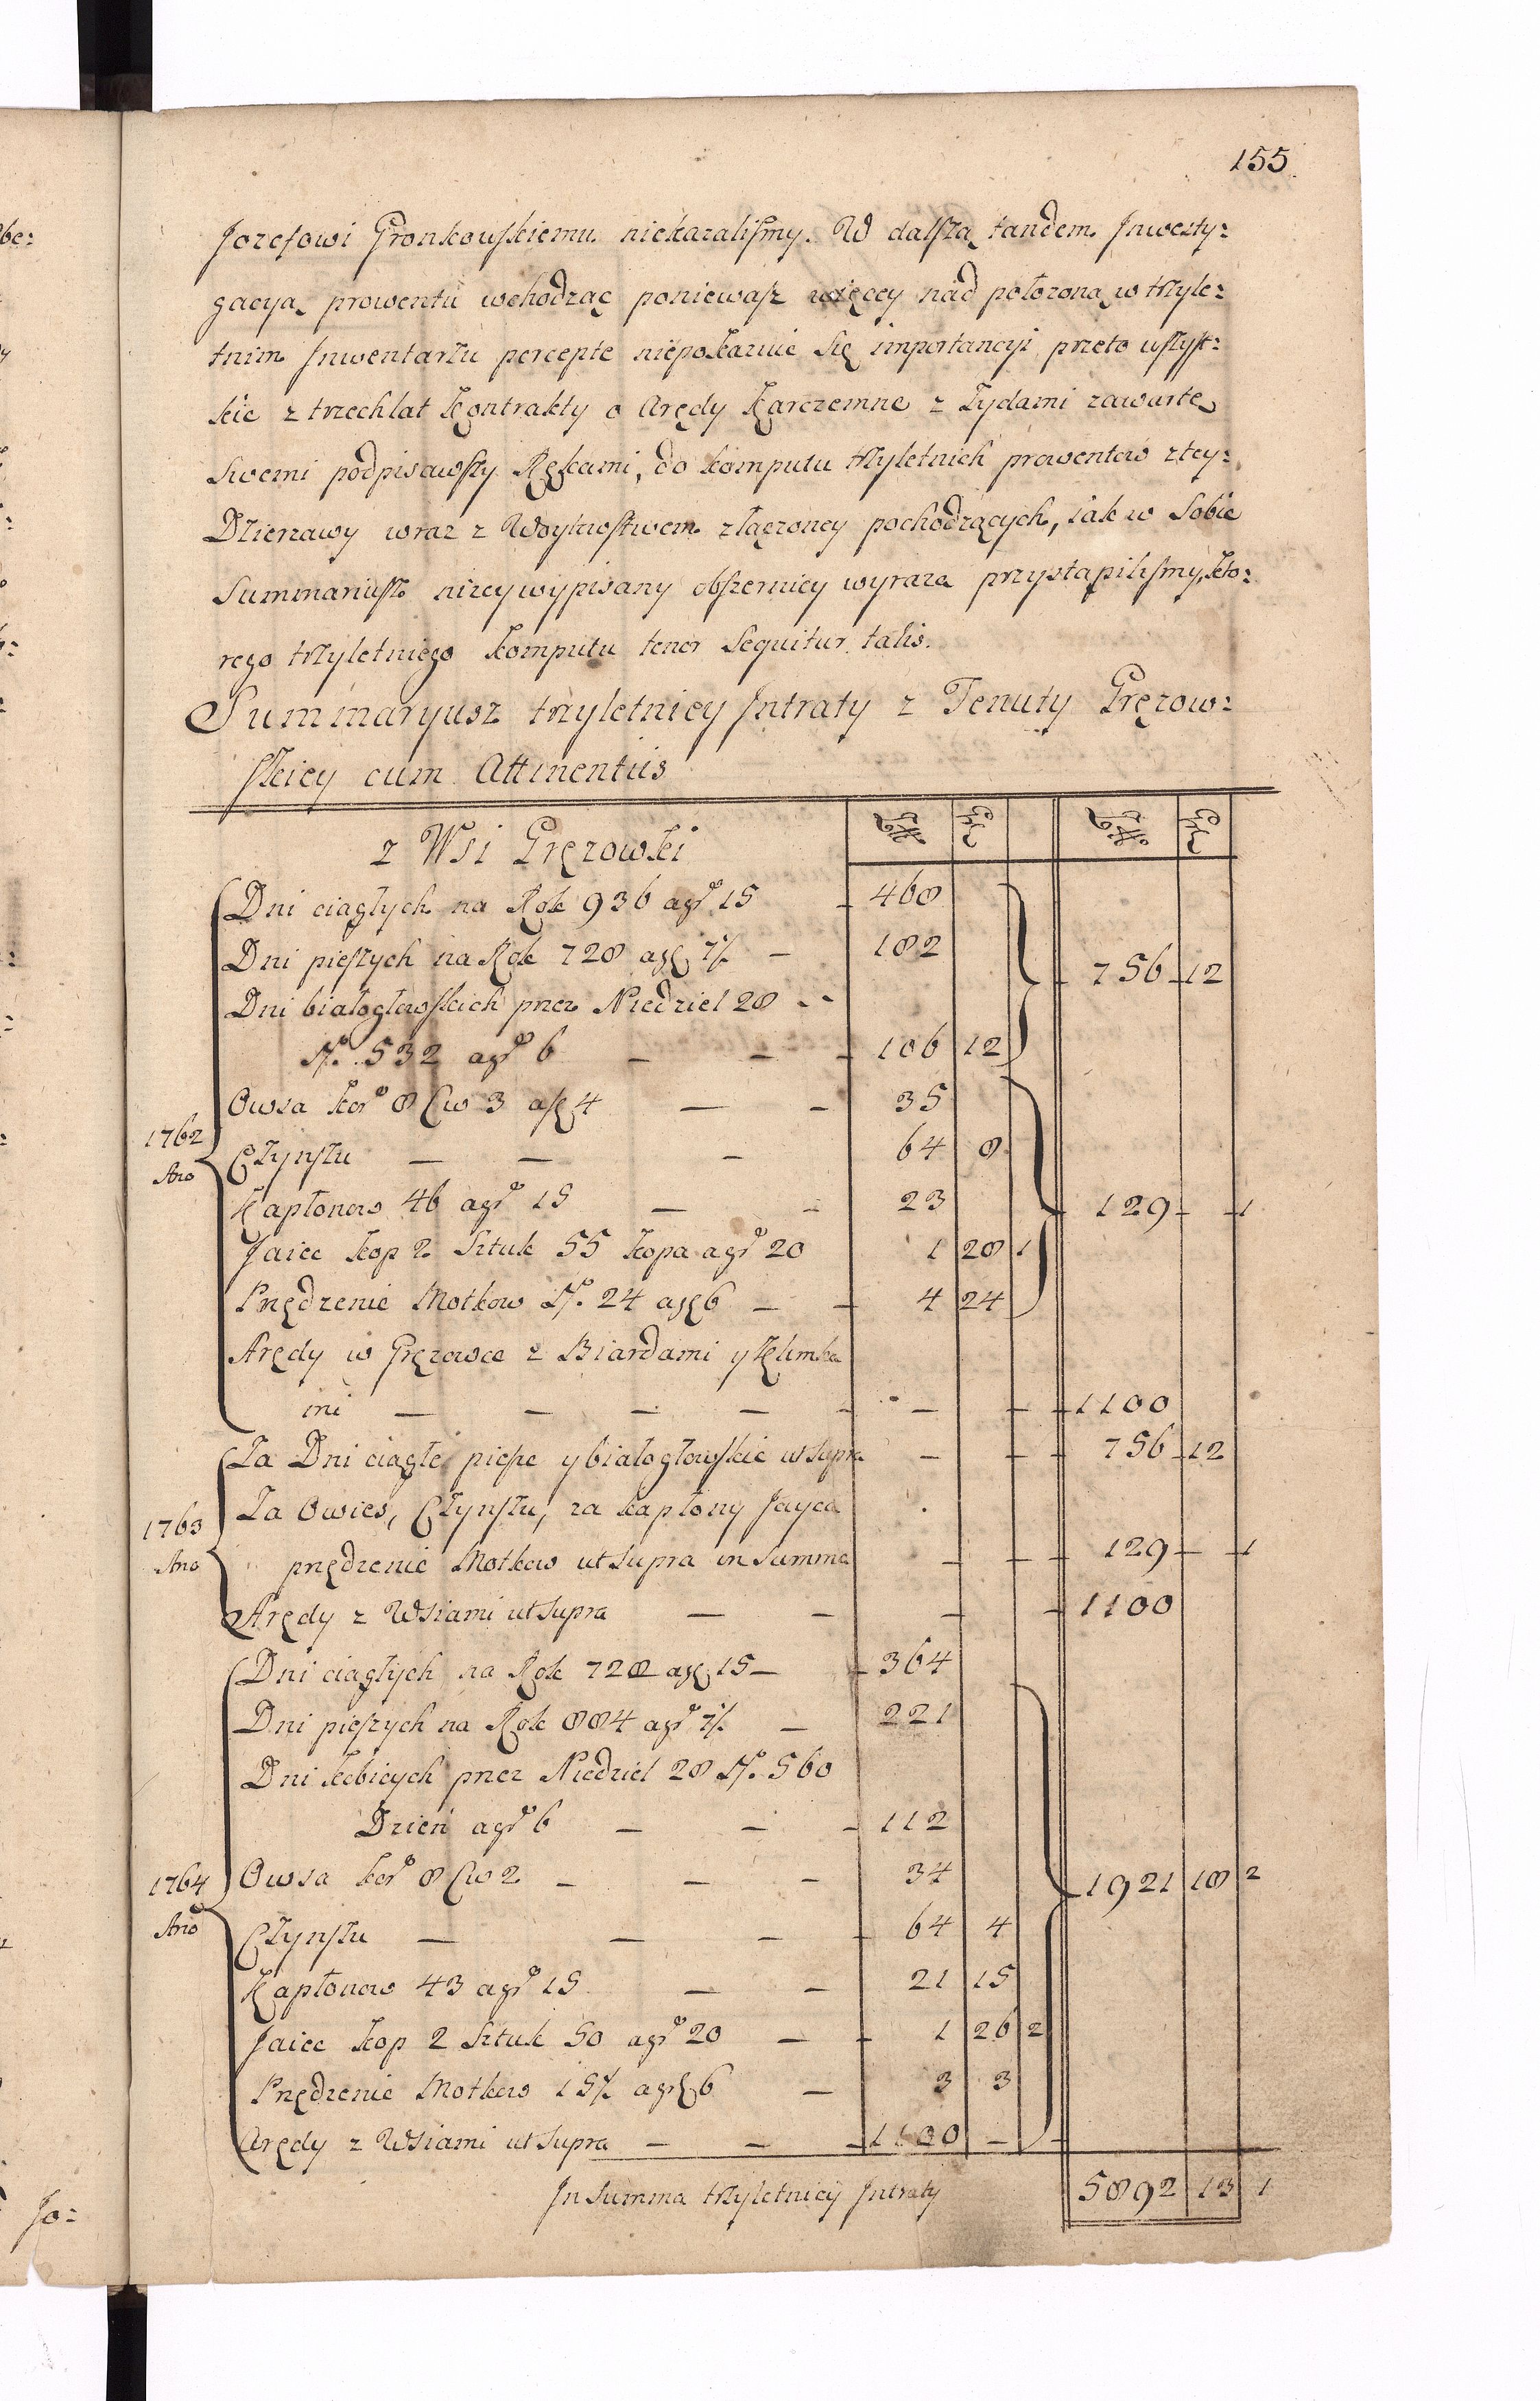 155.
Jozefowi Gronkowskiemu niekazaliſmy. W dalſzą tandem Jnwesty:
gacyą prowentu wchodząc poniewaſz więcey nad położoną w trzyle:
tnim Jnwentarzu percepte niepokazuie się importancyi przeto wſzyſt:
kie z trzechlat kontrakty o Arędy karczemne z Żydami zawarte
swemi podpisawſzy Rękami, do komputu trzyletnich prowentow z tey:
Dzierzawy wraz z Woytowſtwem złączoney pochodzących, iak w Sobie
Summariuſz nizey wypisany obſzerniey wyraza przystąpiliſmy, kto:
rego trzyletniego komputu tenor sequitur talis.
Summaryusz trzyletniey Jntraty z Tenuty Gręzow:
ſkiey cum Attinentiis
z Wsi Gręzowki Zł Gr Zł Gr
Dni ciągłych na Rok 936 a gr 15 — 468
Dni pieſzych na Rok 728 a gr 7½ — 182
756 12
Dni białogłowſkich przez Niedziel 28
No. 532 a gr 6 — — — 106 12
Owsa kor 8 Ćw 3 a zł 4 — — 35
1762
Czynſzu — — — 64 8
Ano
Kapłonow 46 a gr 15 — — 23 129 — 1
Jaiec kop 2 Sztuk 55 kopa a gr 20 1 28 1
Przędzenie Motkow No. 24 a gr 6 — — 4 24
Arędy w Gręzowce z Biardami y Klimka
mi — — — — — — — — 1100
Za Dni ciągłe pieſze y białogłowſkie ut supra — — — 756 12
Za Owies, Czynſzu, za kapłony Jayca
1763
przędzenie Motkow ut supra in summa — — — 129 — 1
Ano
Arędy z Wsiami ut supra — — — — 1100
Dni ciągłych na Rok 728 a gr 15 — — 364
Dni pieſzych na Rok 884 a gr 7½ — 221
Dni kobieych przez Niedziel 28 No. 560
Dzień a gr 6 — — — 112
1764
Owsa kor 8 Ćw 2 — — — 34 1921 18 2
Ano
Czynſzu — — — — 64 4
Kapłonow 43 a gr 15 — — 21 15
Jaiec kop 2 Sztuk 50 a gr 20 — — 1 26 2
Przędzenie Motkow 15½ a gr 6 — 3 3
Arędy z Wsiami ut supra — — — 1100 — —
Jn Summa trzyletniey Jntraty 5892 13 1
Jo: